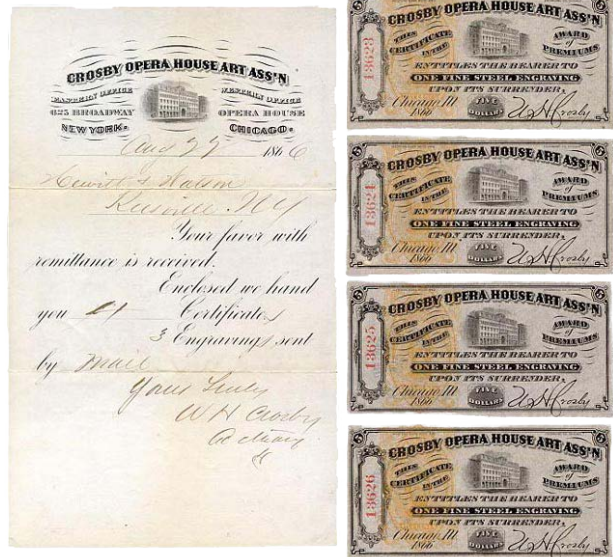 CROSBY OPERA HOUSE ART ASS'N
EASTERN OFFICE WESTERN OFFICE
625 BROADWAY OPERA HOUSE
NEW YORK. CHICAGO.
Aug 27 1866
Your favor with
remittance is received.
Enclosed we hand
you Certificates
3 Engravings sent
by mail
Yours Truly
W H Crosby
CROSBY OPERA HOUSE ART ASS'N
13623
THIS CERTIFICATE IN THE
AWARD of PREMIUMS
ENTITLES THE BEARER TO
ONE FINE STEEL ENGRAVING
UPON ITS SURRENDER.
Chicago Ill. 1866
FIVE DOLLARS
U H Crosby
5
CROSBY OPERA HOUSE ART ASS'N
13624
THIS CERTIFICATE IN THE
AWARD of PREMIUMS
ENTITLES THE BEARER TO
ONE FINE STEEL ENGRAVING
UPON ITS SURRENDER.
Chicago Ill. 1866
FIVE DOLLARS
U H Crosby
5
CROSBY OPERA HOUSE ART ASS'N
13625
THIS CERTIFICATE IN THE
AWARD of PREMIUMS
ENTITLES THE BEARER TO
ONE FINE STEEL ENGRAVING
UPON ITS SURRENDER.
Chicago Ill. 1866
FIVE DOLLARS
U H Crosby
5
CROSBY OPERA HOUSE ART ASS'N
13626
THIS CERTIFICATE IN THE
AWARD of PREMIUMS
ENTITLES THE BEARER TO
ONE FINE STEEL ENGRAVING
UPON ITS SURRENDER.
Chicago Ill. 1866
FIVE DOLLARS
U H Crosby